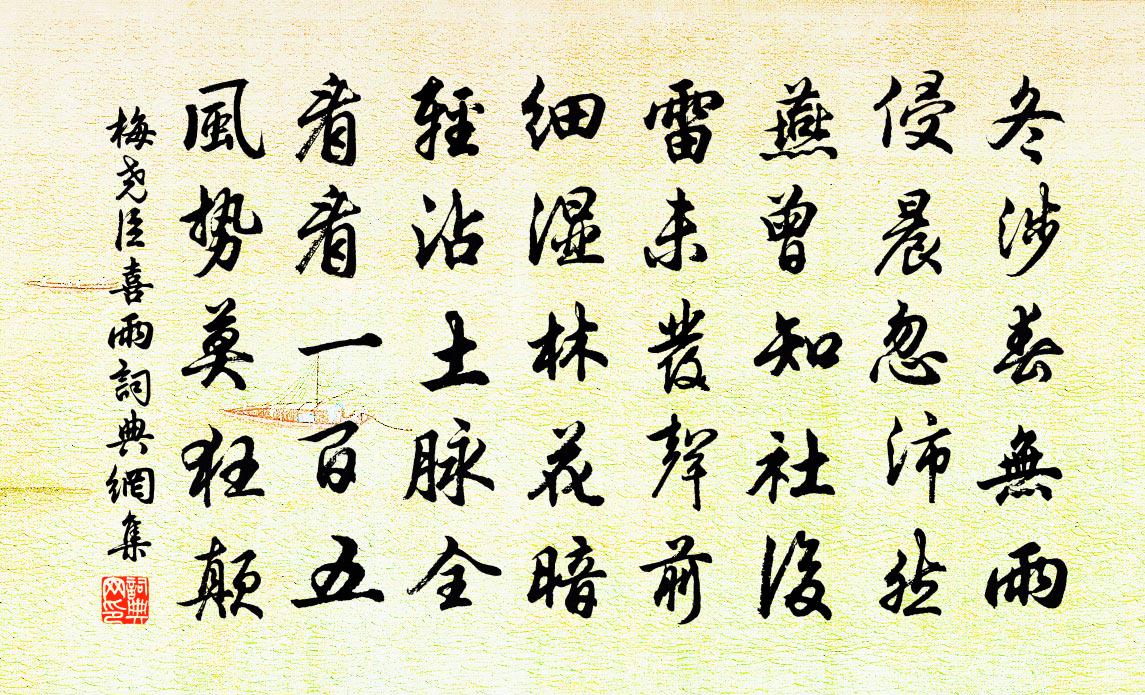 冬涉春無雨
侵晨忽沛然
燕曾知社後
雷未發聲前
細濕林花暗
輕沾土脉全
看看一百五
風势莫狂顛
梅堯臣喜雨詞典網集
詞典網印